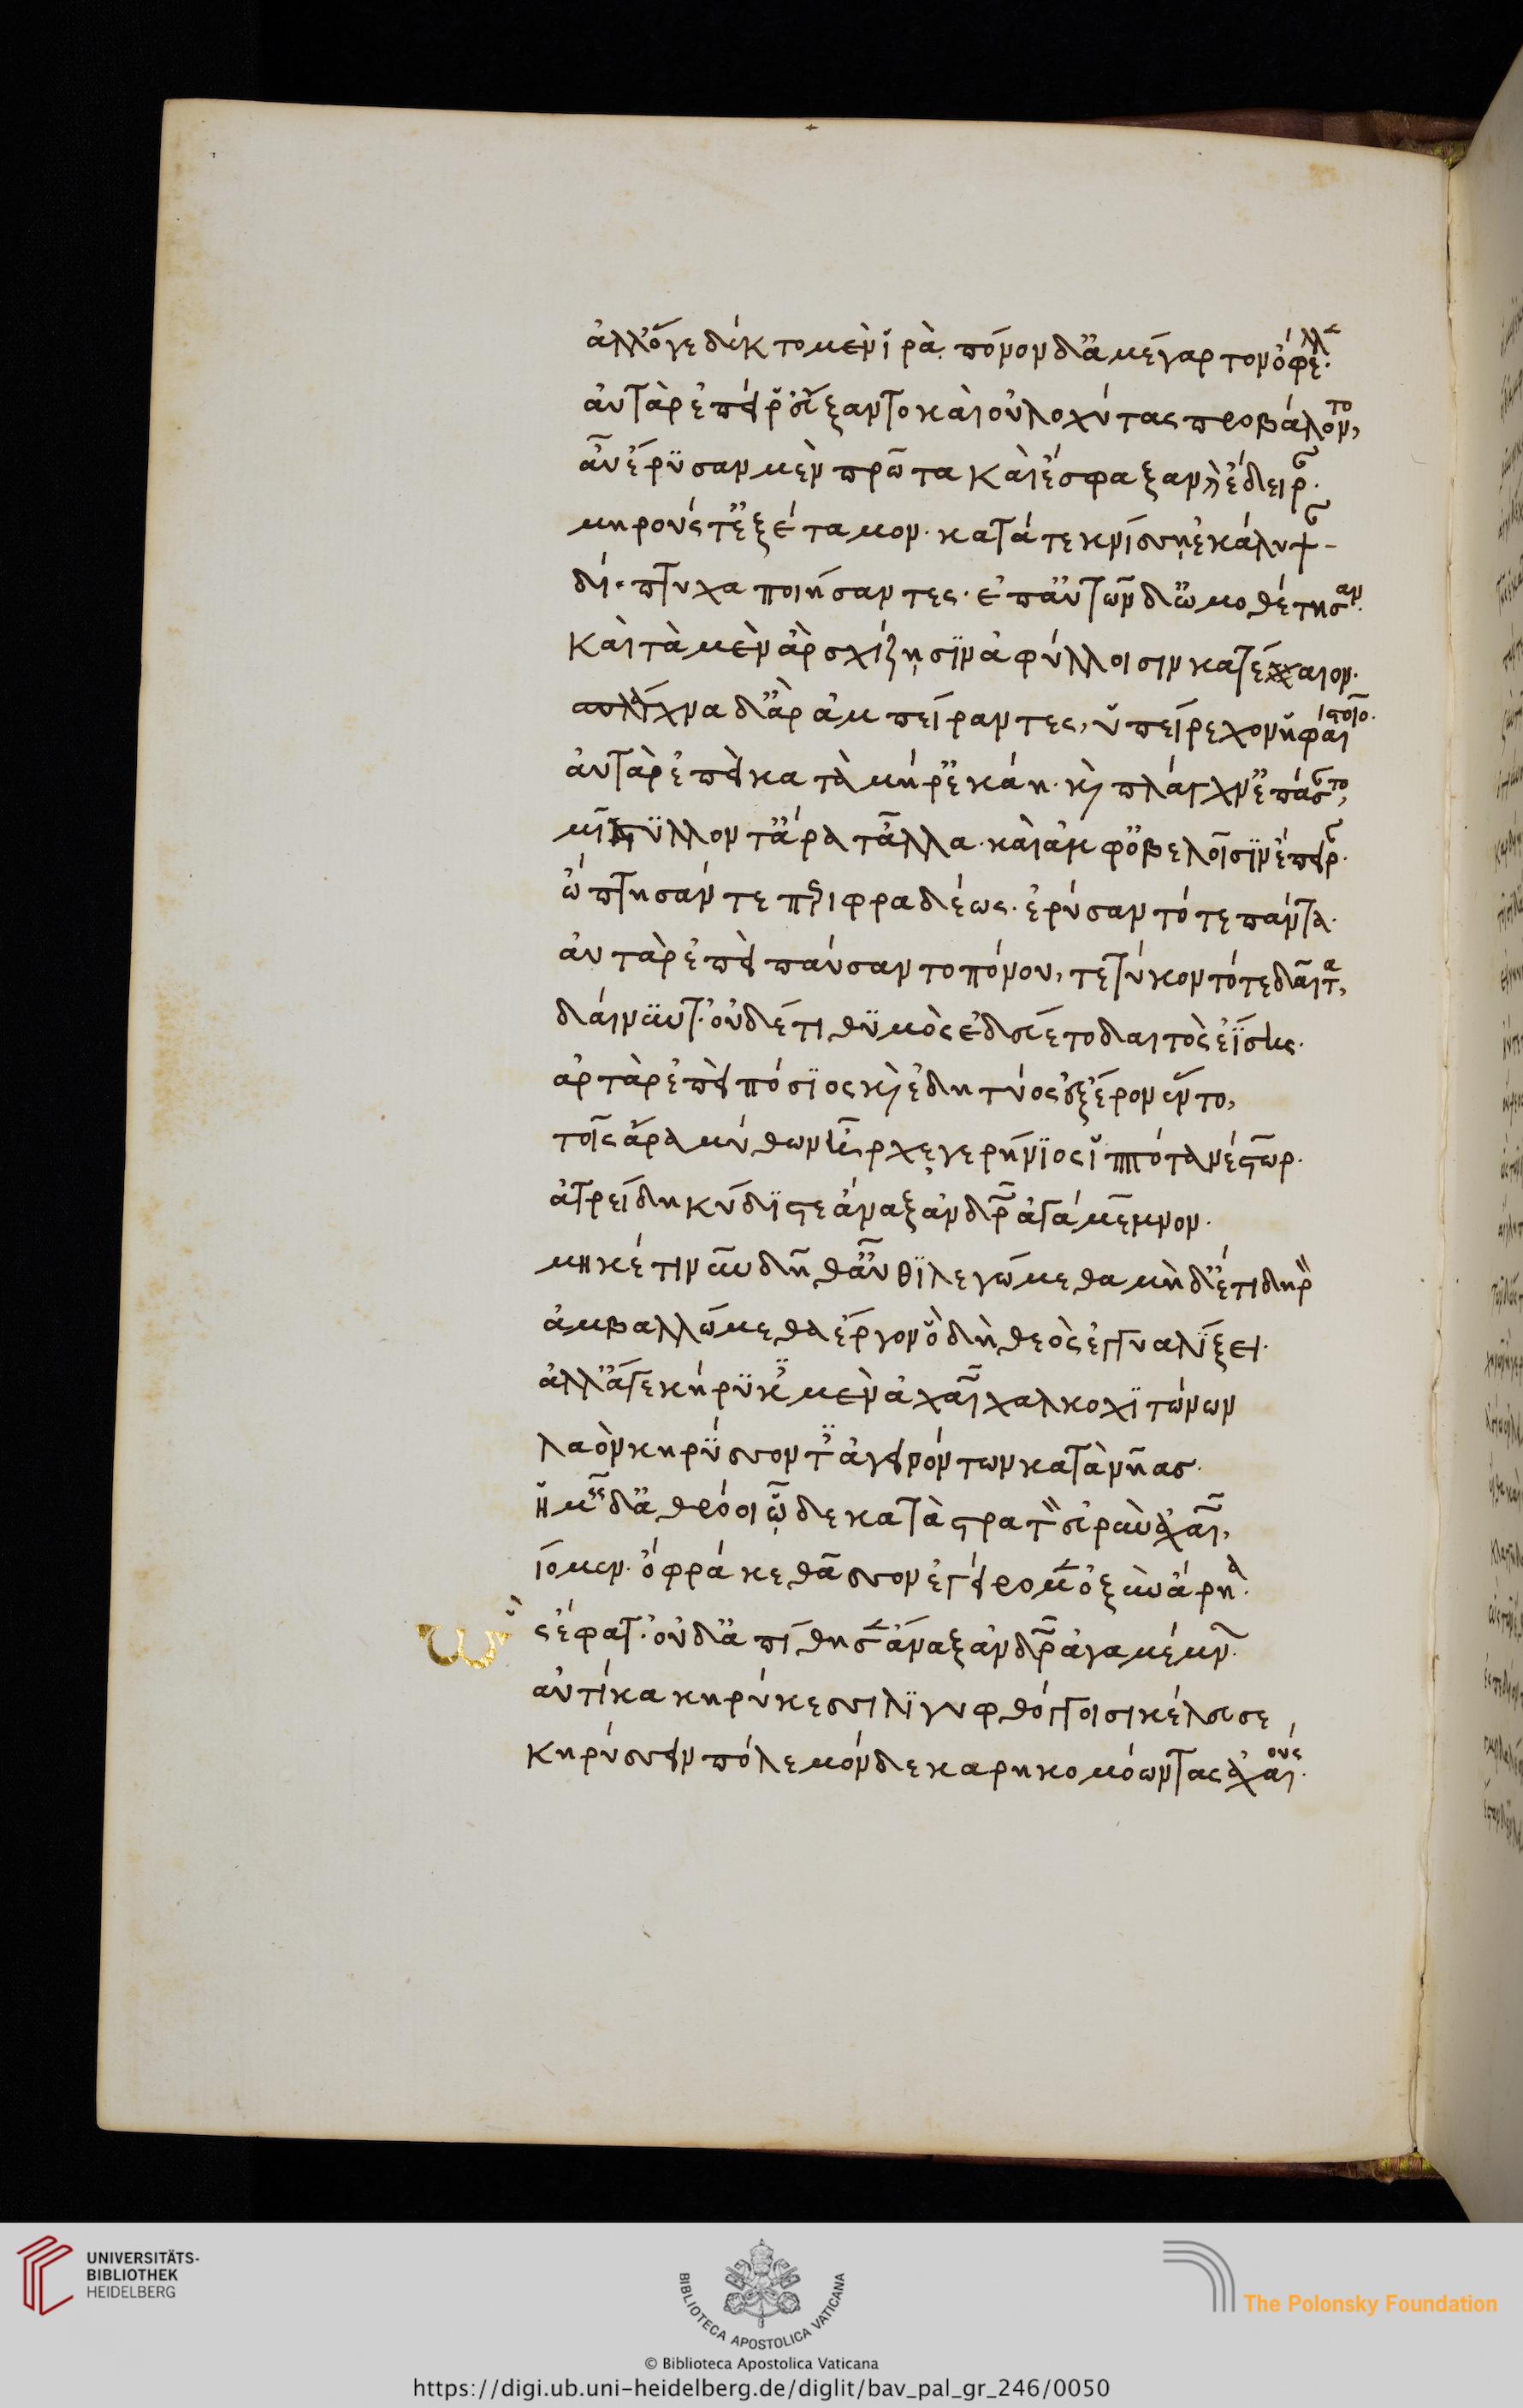 ἀλλ' ὅγε δέκτο μὲν ἱρὰ. πόνον δ' ἀμέγαρτον ὄφελλε.
αὐτὰρ ἐπεί ῥ' εὔξαντο καὶ οὐλοχύτας προβάλοντο,
αὖ ἔρυσαν μὲν πρῶτα καὶ ἔσφαξαν καὶ ἔδειραν.
μηρούς τ' ἐξέταμον. κατά τε κνίσσῃ ἐκάλυψαν
δίπτυχα ποιήσαντες. ἐπ' αὐτῶν δ' ὠμοθέτησαν.
καὶ τὰ μὲν ἂρ σχίζῃσιν ἀφύλλοισιν κατέκαιον.
σπλάγχνα δ' ἂρ ἀμπείραντες, ὑπείρεχον ἡφαίστοιο.
αὐτὰρ ἐπεὶ κατὰ μῆρ' ἐκάη. καὶ σπλάγχν' ἐπάσαντο,
μίστυλλόν τ' ἄρα τἆλλα. καὶ ἀμφ' ὀβελοῖσιν ἔπειραν.
ὤπτησάν τε περιφραδέως. ἐρύσαντό τε πάντα.
αὐτὰρ ἐπεὶ παύσαντο πόνου, τετύκοντό τε δαῖτα,
δαίνυντ'. οὐδέ τι θυμὸς ἐδεύετο δαιτὸς ἐΐσης.
αὐτὰρ ἐπεὶ πόσιος καὶ ἐδητύος ἐξ ἔρον ἕντο,
τοῖς ἄρα μύθων ἦρχε γερήνιος ἱππότα νέστωρ.
ἀτρείδη κύδιστε ἄναξ ἀνδρῶν ἀγάμεμνον.
μηκέτι νῦν δὴ θ' αὖθι λεγώμεθα μὴδ' ἔτι δηρὸν
ἀμβαλλώμεθα ἔργον ὃ δὴ θεὸς ἐγγυαλίξει.
ἀλλ' ἄγε κήρυκες μὲν ἀχαιῶν χαλκοχιτώνων
λαὸν κηρύσσοντες ἀγειρόντων κατὰ νῆας.
ἡμεῖς δ' ἀθρόοι ὧδε κατὰ στρατὸν εὐρὺν ἀχαιῶν,
ἴομεν. ὄφρά κε θᾶσσον ἐγείρομεν ὀξὺν ἄρηα.
ὣς ἔφατ'. οὐδ' ἀπίθησεν ἄναξ ἀνδρῶν ἀγαμέμνων.
αὐτίκα κηρύκεσσι λιγυφθόγγοισι κέλευσε
κηρύσσειν πόλεμόνδε καρηκομόωντας ἀχαιούς.
UNIVERSITÄTS-
BIBLIOTHEK
HEIDELBERG
BIBLIOTECA APOSTOLICA VATICANA
The Polonsky Foundation
© Biblioteca Apostolica Vaticana
https://digi.ub.uni-heidelberg.de/diglit/bav_pal_gr_246/0050